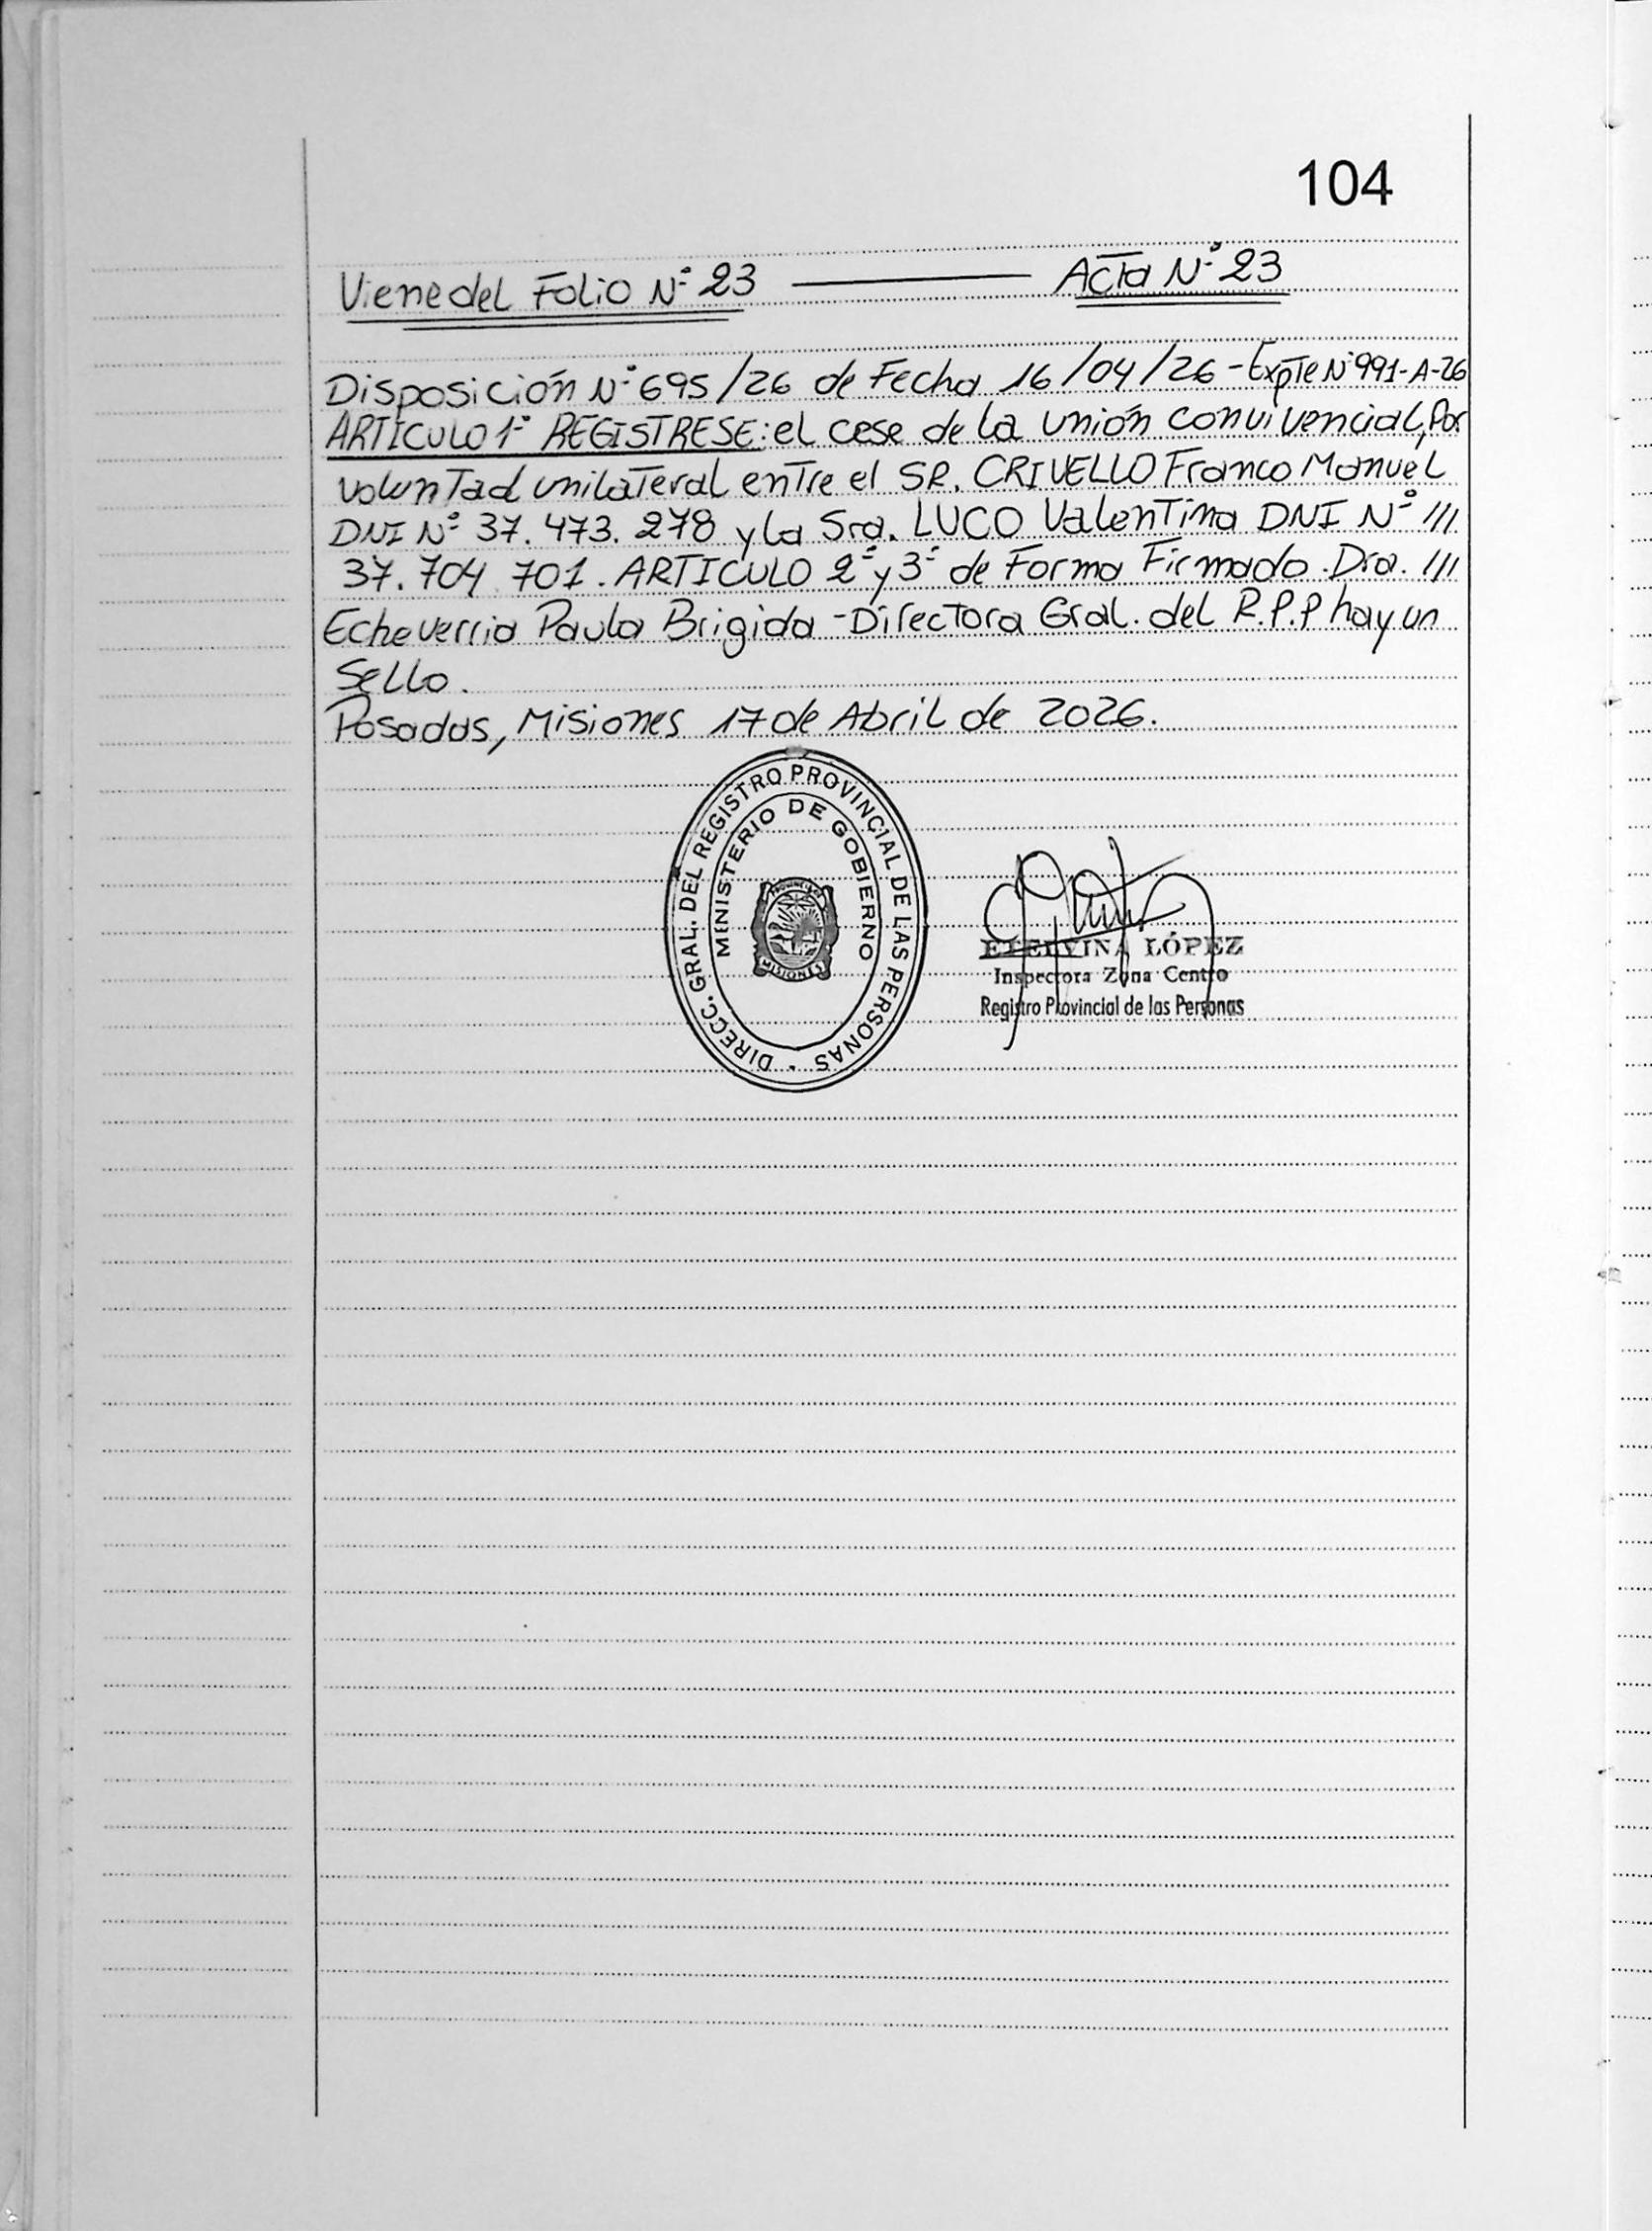 104
Viene del Folio N° 23 ——— Acta N° 23
Disposición N° 695/26 de Fecha 16/04/26 - Expte N° 991-A-26
ARTICULO 1° REGISTRESE: el cese de la unión convivencial, Por
voluntad unilateral entre el SR. CRIVELLO Franco Manuel
DNI N° 37.473.278 y la Sra. LUCO Valentina DNI N° ///
37.704.701. ARTICULO 2° y 3° de Forma Firmado. Dra. ///
Echeverria Paula Brigida - Directora Gral. del R.P.P hay un
Sello.
Posadas, Misiones 17 de Abril de 2026.
DIRECC. GRAL. DEL REGISTRO PROVINCIAL DE LAS PERSONAS
MINISTERIO DE GOBIERNO
MISIONES
ETELVINA LÓPEZ
Inspectora Zona Centro
Registro Provincial de las Personas